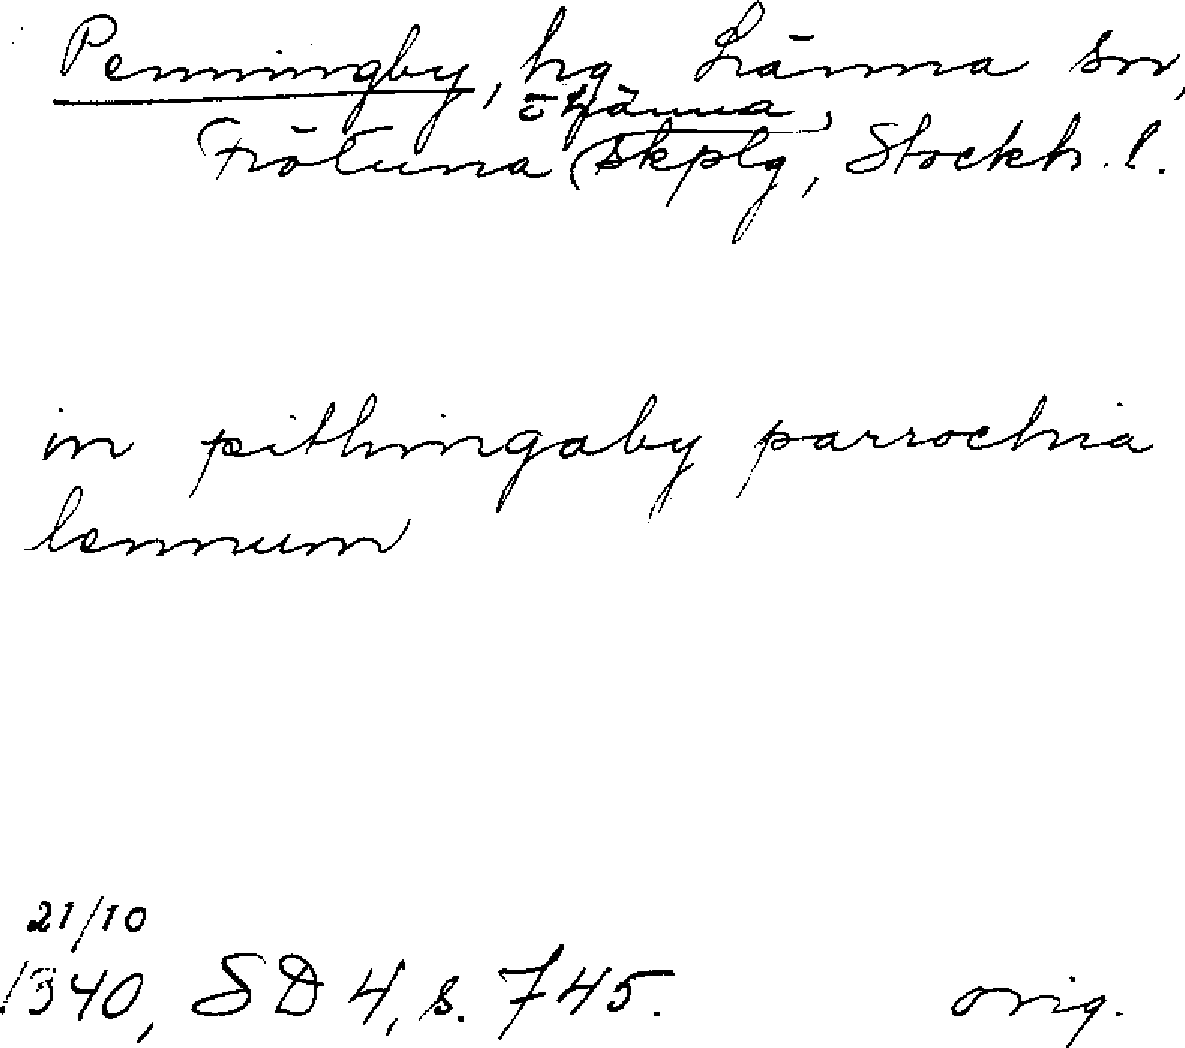 Penningby, hg Länna sn,
o Länna,
Frötuna skplg, Stockh. l.
in pithingaby parrochia
lennum
21/10
1340, SD 4, s. 745. orig.